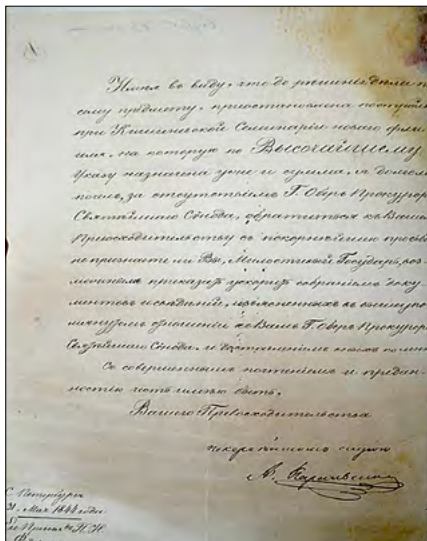 Имѣя въ виду, что до рѣшенія дѣла п
сему предмету, приостановлена построй
при Кишиневской Семинаріи новаго фли
иля, на которую по Высочайшему
Указу назначена уже и сумма, я долгом
почелъ, за отсутствіемъ Г. Оберъ Прокурор
Святѣйшаго Сѵнода, обратиться къ Ваше
Превосходительству съ покорнѣйшею прозьбо
не признаете ли Вы, Милостивый Государь, воз
можнымъ приказать ускорить собраніемъ доку
ментовъ и свѣдѣній,
отношеніи къ Вамъ Г. Оберъ Прокурор
Святѣйшаго Сѵнода, и
Съ совершеннымъ почтеніемъ и предан
ностію честь имѣю быть
Вашего Превосходительства
покорнѣйшимъ слугою
А.
С. Петербургъ
31 Мая 1844 года